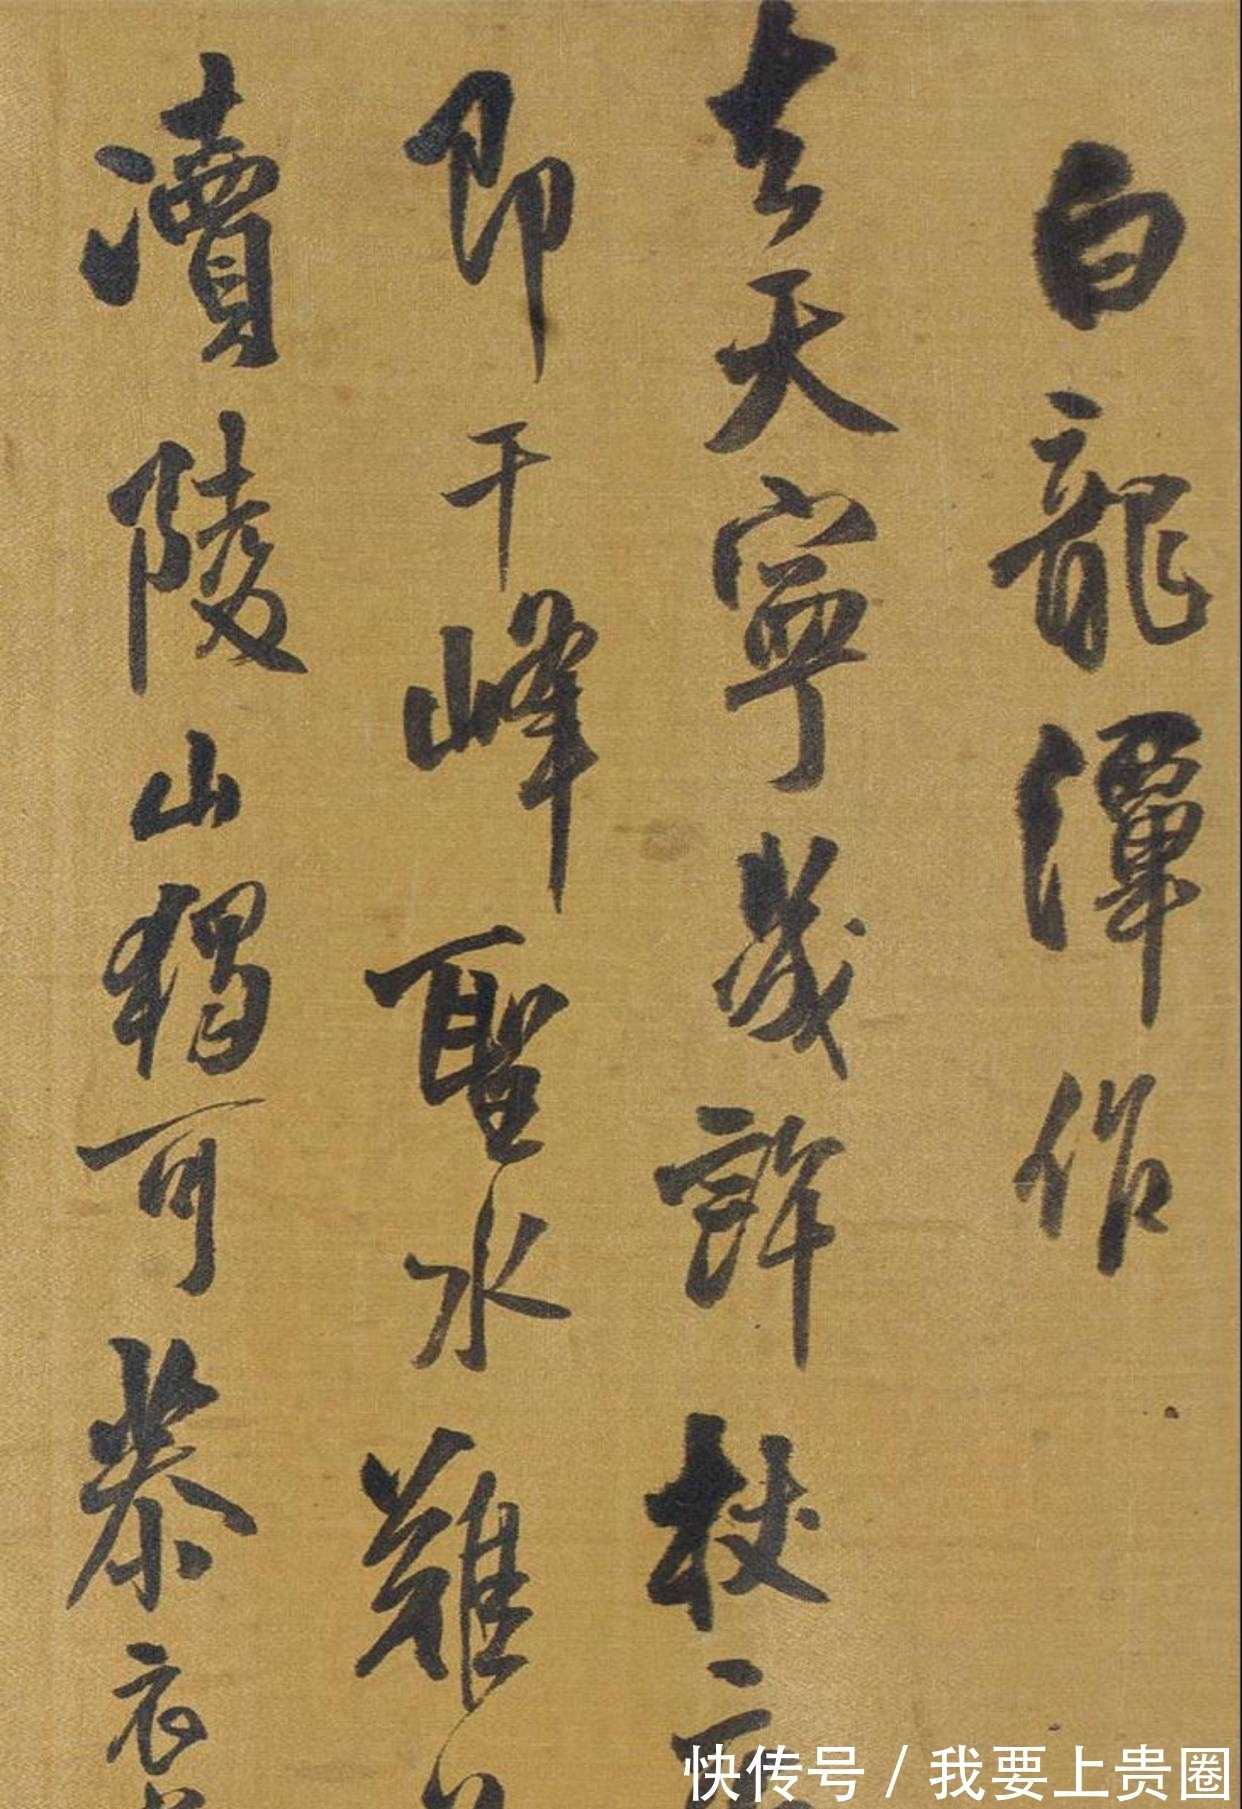 白龍潭作
去天寧幾許杖
即千峰聖水難
瀆陵山獨可恭衣
快传号/我要上贵圈